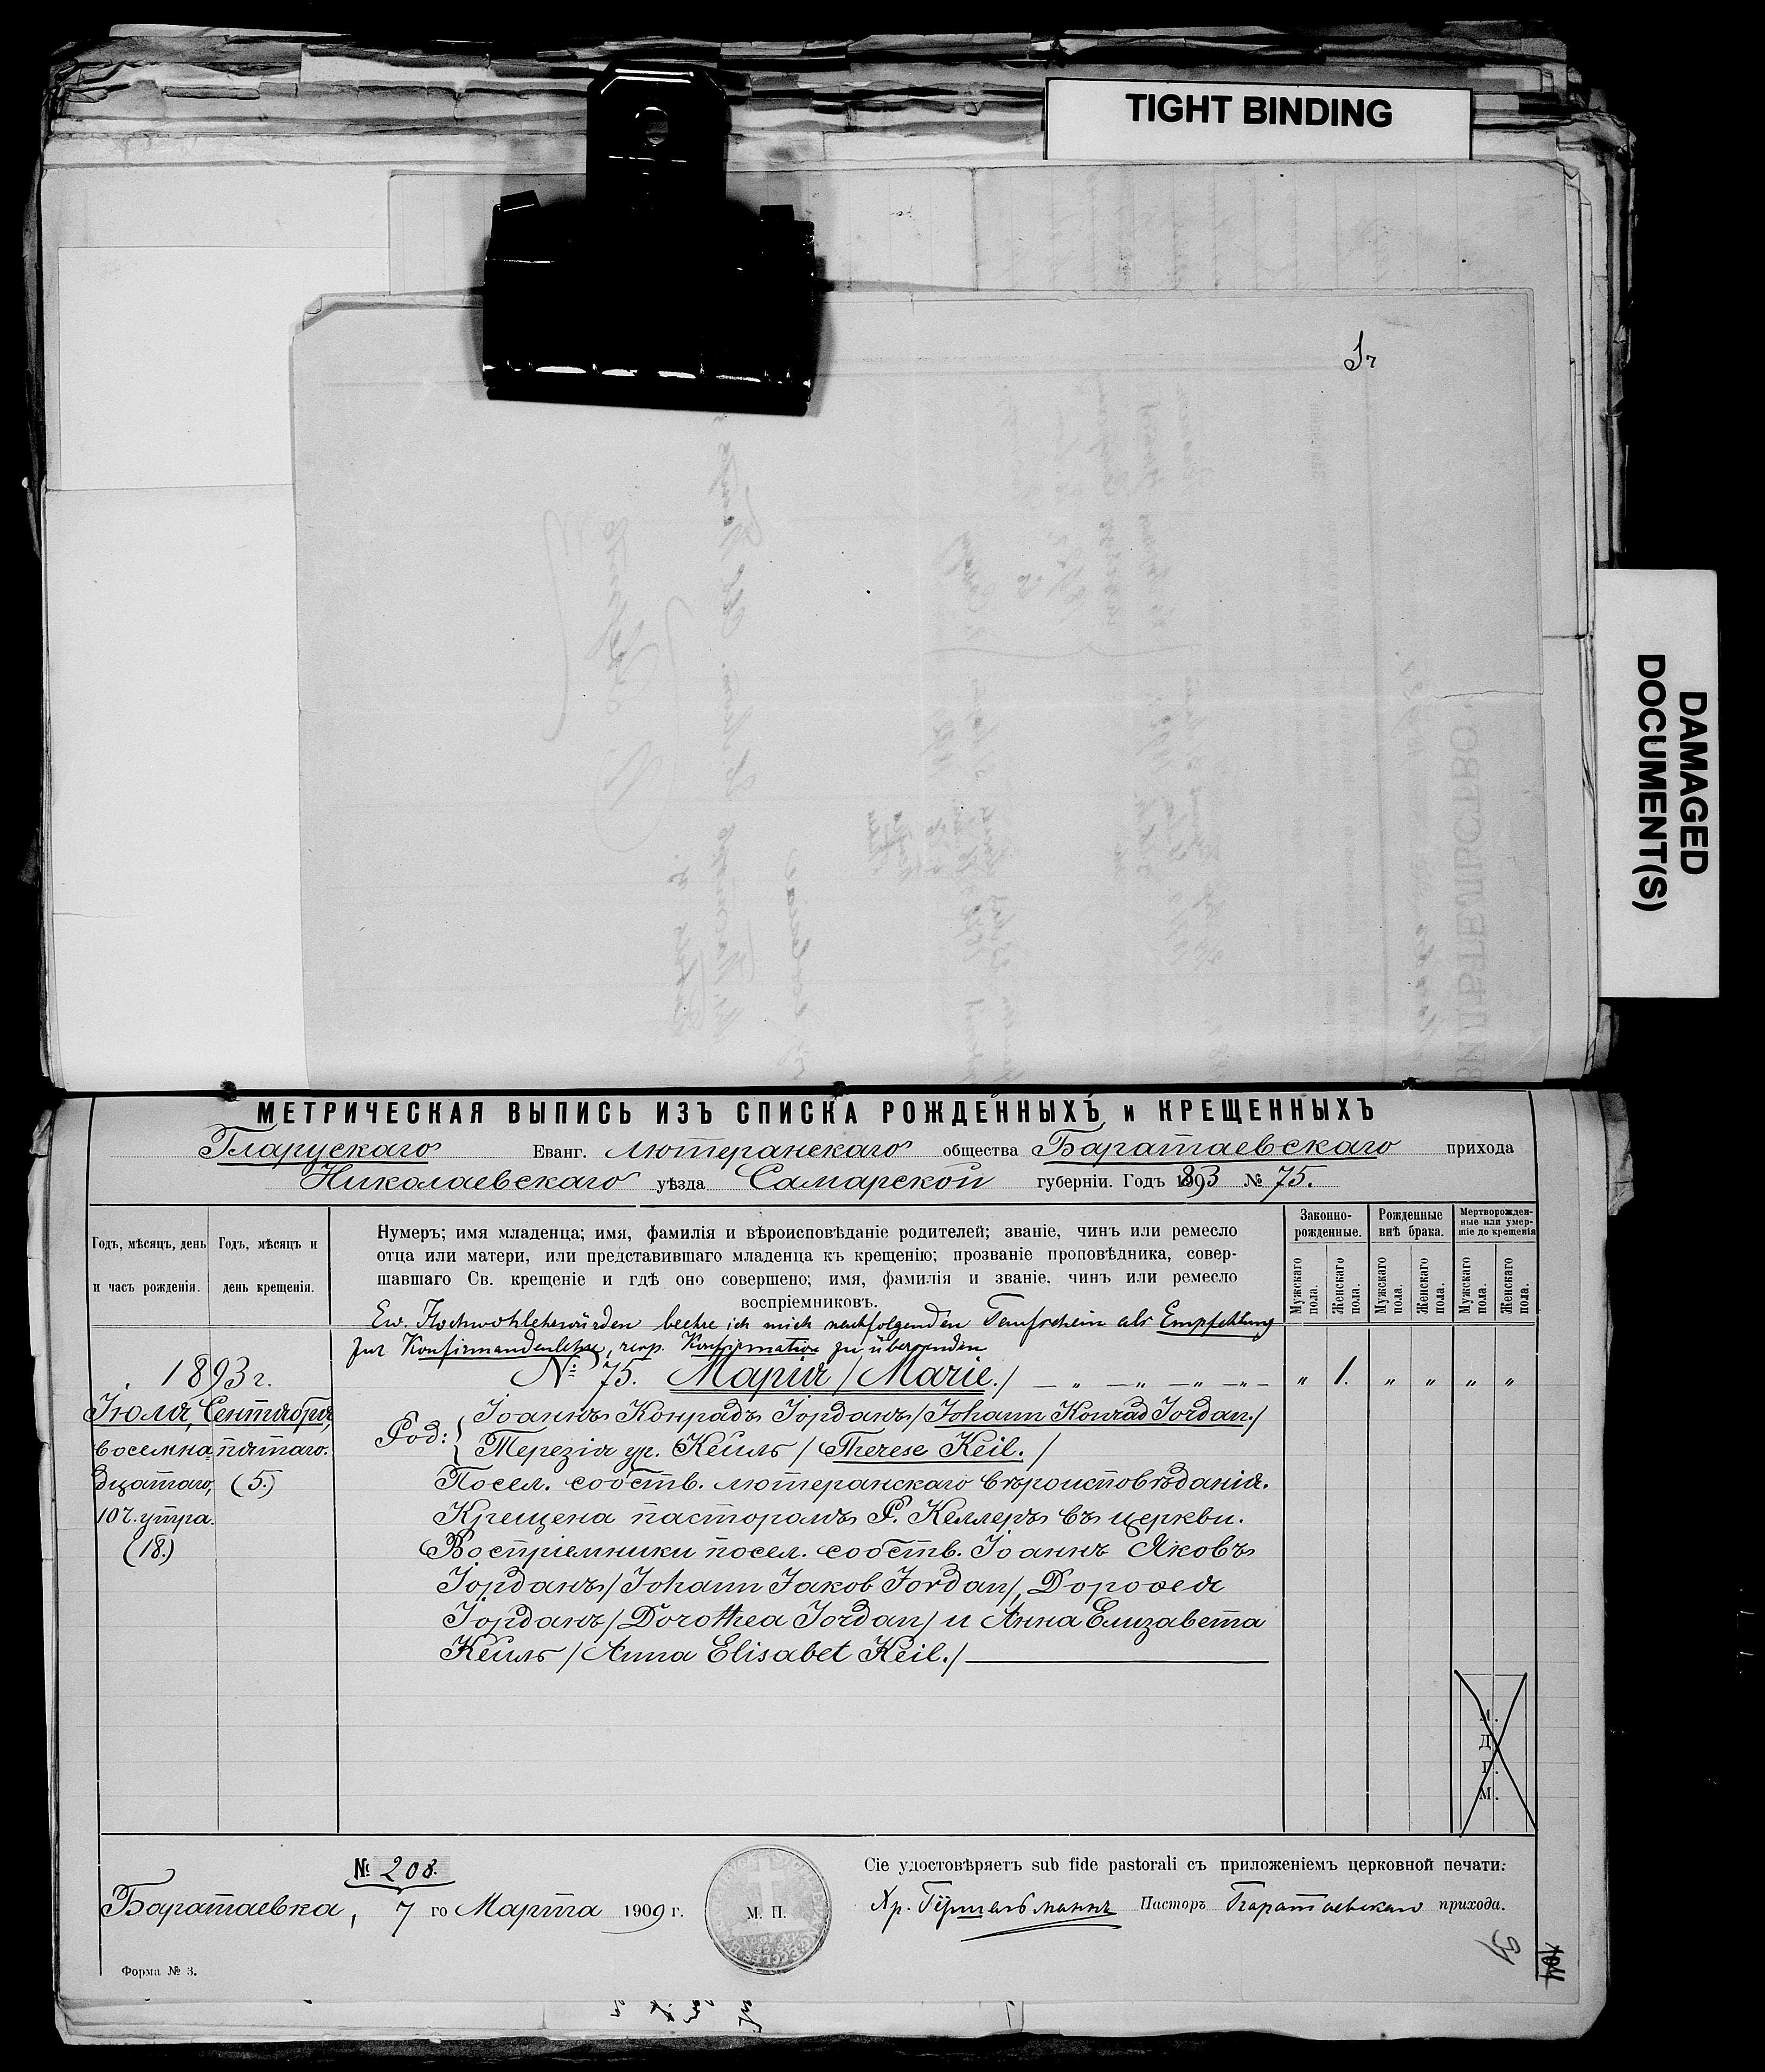 TIGHT BINDING
DAMAGED
DOCUMENT(S)
МЕТРИЧЕСКАЯ ВЫПИСЬ ИЗЪ СПИСКА РОЖДЕННЫХЪ и КРЕЩЕННЫХЪ
Гларускаго Еванг. лютеранскаго общества Баратаевскаго прихода
Николаевскаго уѣзда Самарской губерніи. Годъ 1893 № 75.
Годъ, мѣсяцъ, день
и часъ рожденія.
Годъ, мѣсяцъ и
день крещенія.
Нумеръ; имя младенца; имя, фамилія и вѣроисповѣданіе родителей; званіе, чинъ или ремесло
отца или матери, или представившаго младенца къ крещенію; прозваніе проповѣдника, совер-
шавшаго Св. крещеніе и гдѣ оно совершено; имя, фамилія и званіе, чинъ или ремесло
воспріемниковъ.
Законно-
рожденные.
Рожденные
внѣ брака.
Мертворожден-
ные или умер-
шіе до крещенія
Мужскаго пола.
Женскаго пола.
Мужскаго пола.
Женскаго пола.
Мужскаго пола.
Женскаго пола.
Ew. Hochwohlehrwürden beehre ich mich nachfolgenden Taufschein als Empfehlung
zur Konfirmandenlehre, resp. Konfirmation zu übersenden
1893 г.
№ 75. Марія / Marie. / — „ — „ — „ — „ — „ 1. „ „ „ „
Іюля, Сентября,
восемна= пятаго.
дцатаго, (5.)
10 ч. утра.
(18.)
Род: { Іоаннъ Конрадъ Іорданъ / Johann Konrad Jordan. /
Терезія ур. Кейль / Therese Keil. /
Посел. собств. лютеранскаго вѣроисповѣданія.
Крещена пасторомъ Р. Келлеръ въ церкви.
Воспріемники посел. собств. Іоаннъ Яковъ
Іорданъ / Johann Jakob Jordan /, Доротея
Іорданъ / Dorothea Jordan / и Анна Елизавета
Кейль / Anna Elisabet Keil. /
м.
д.
г.
м.
№ 208.
Баратаевка, 7 го Марта 1909 г.
М. П.
Сіе удостовѣряетъ sub fide pastorali съ приложеніемъ церковной печати:
Пасторъ Баратаевскаго прихода.
Форма № 3.